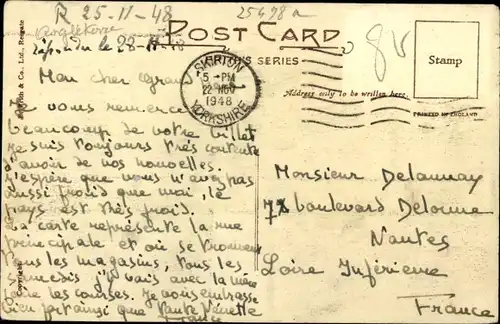 R 25-11-48
25478a
Angleterre
répondu le 28-11-48
POST CARD
SERIES
Stamp
8V
Address only to be written here.
PRINTED IN ENGLAND
& Co., Ltd., Reigate
Copyright
SKIPTON
5 - PM
22 NOV
1948
YORKSHIRE
Mon cher
Je vous remercie
beaucoup de votre billet
je suis toujours très contente
d'avoir de vos nouvelles.
j'espère que vous n'avez pas
aussi froid que moi, le
pays est très froid.
La carte représente la rue
principale et où se trouvent
tous les magasins, tous les
samedis j'y vais avec la mère
faire les courses. Je vous embrasse
bien fort ainsi que tante
France
Monsieur Delaunay
78 boulevard Delorme
Nantes
Loire Inférieure
France